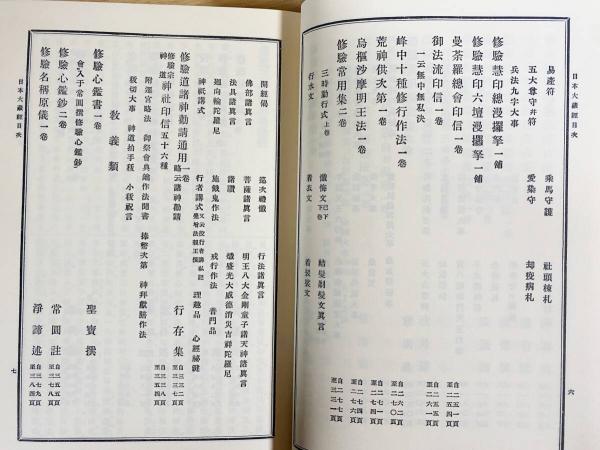 日本大藏經目次
易產符 乘馬守護 社頭棟札
五大尊守幷符 愛染守 却疫病札
兵法九字大事
修驗慧印總漫拏攞一鋪
修驗慧印六壇漫拏攞一鋪
曼荼羅總會印信一卷 自二五一頁 至二五四頁
御法流印信一卷 自二五五頁 至二六一頁
一云無中無私決
峰中十種修行作法一卷 自二六二頁 至二七〇頁
荒神供次第一卷 至二七四頁
烏樞沙摩明王法一卷 自二七四頁 至二七六頁
修驗常用集二卷 自二七七頁 至三三一頁
三時勤行式上卷 懺悔文已下下卷 結髮剃髮文眞言
行水文 着衣文 着袈裟文
六
開經偈 巡次禮懺 行法諸眞言
佛部諸眞言 菩薩諸眞言 明王八大金剛童子諸天神諸眞言
法具諸眞言 諸讚 熾盛光大威德消災吉祥陀羅尼
廻向輪陀羅尼 施餓鬼作法 戒行作法 普門品
神祇講式 行者講式 理趣品 心經祕鍵
修驗道諸神勸請通用一卷 自三三二頁 至三三七頁
修驗宗神道神社印信五十六種 略云諸神勸請 行存集 自三三八頁 至三五四頁
附運宮略法 御祭會典鑰作法聞書 捧幣次第 神拜獻膳作法
祓切大事 神道拍手種 小祓祝言
敎義類
修驗心鑑書一卷 聖寶撰
會入于常圓撰修驗心鑑鈔
修驗心鑑鈔二卷 常圓註 自三五五頁 至三七八頁
修驗名稱原儀一卷 淨諦述 自三七九頁 至三八四頁
日本大藏經目次
七